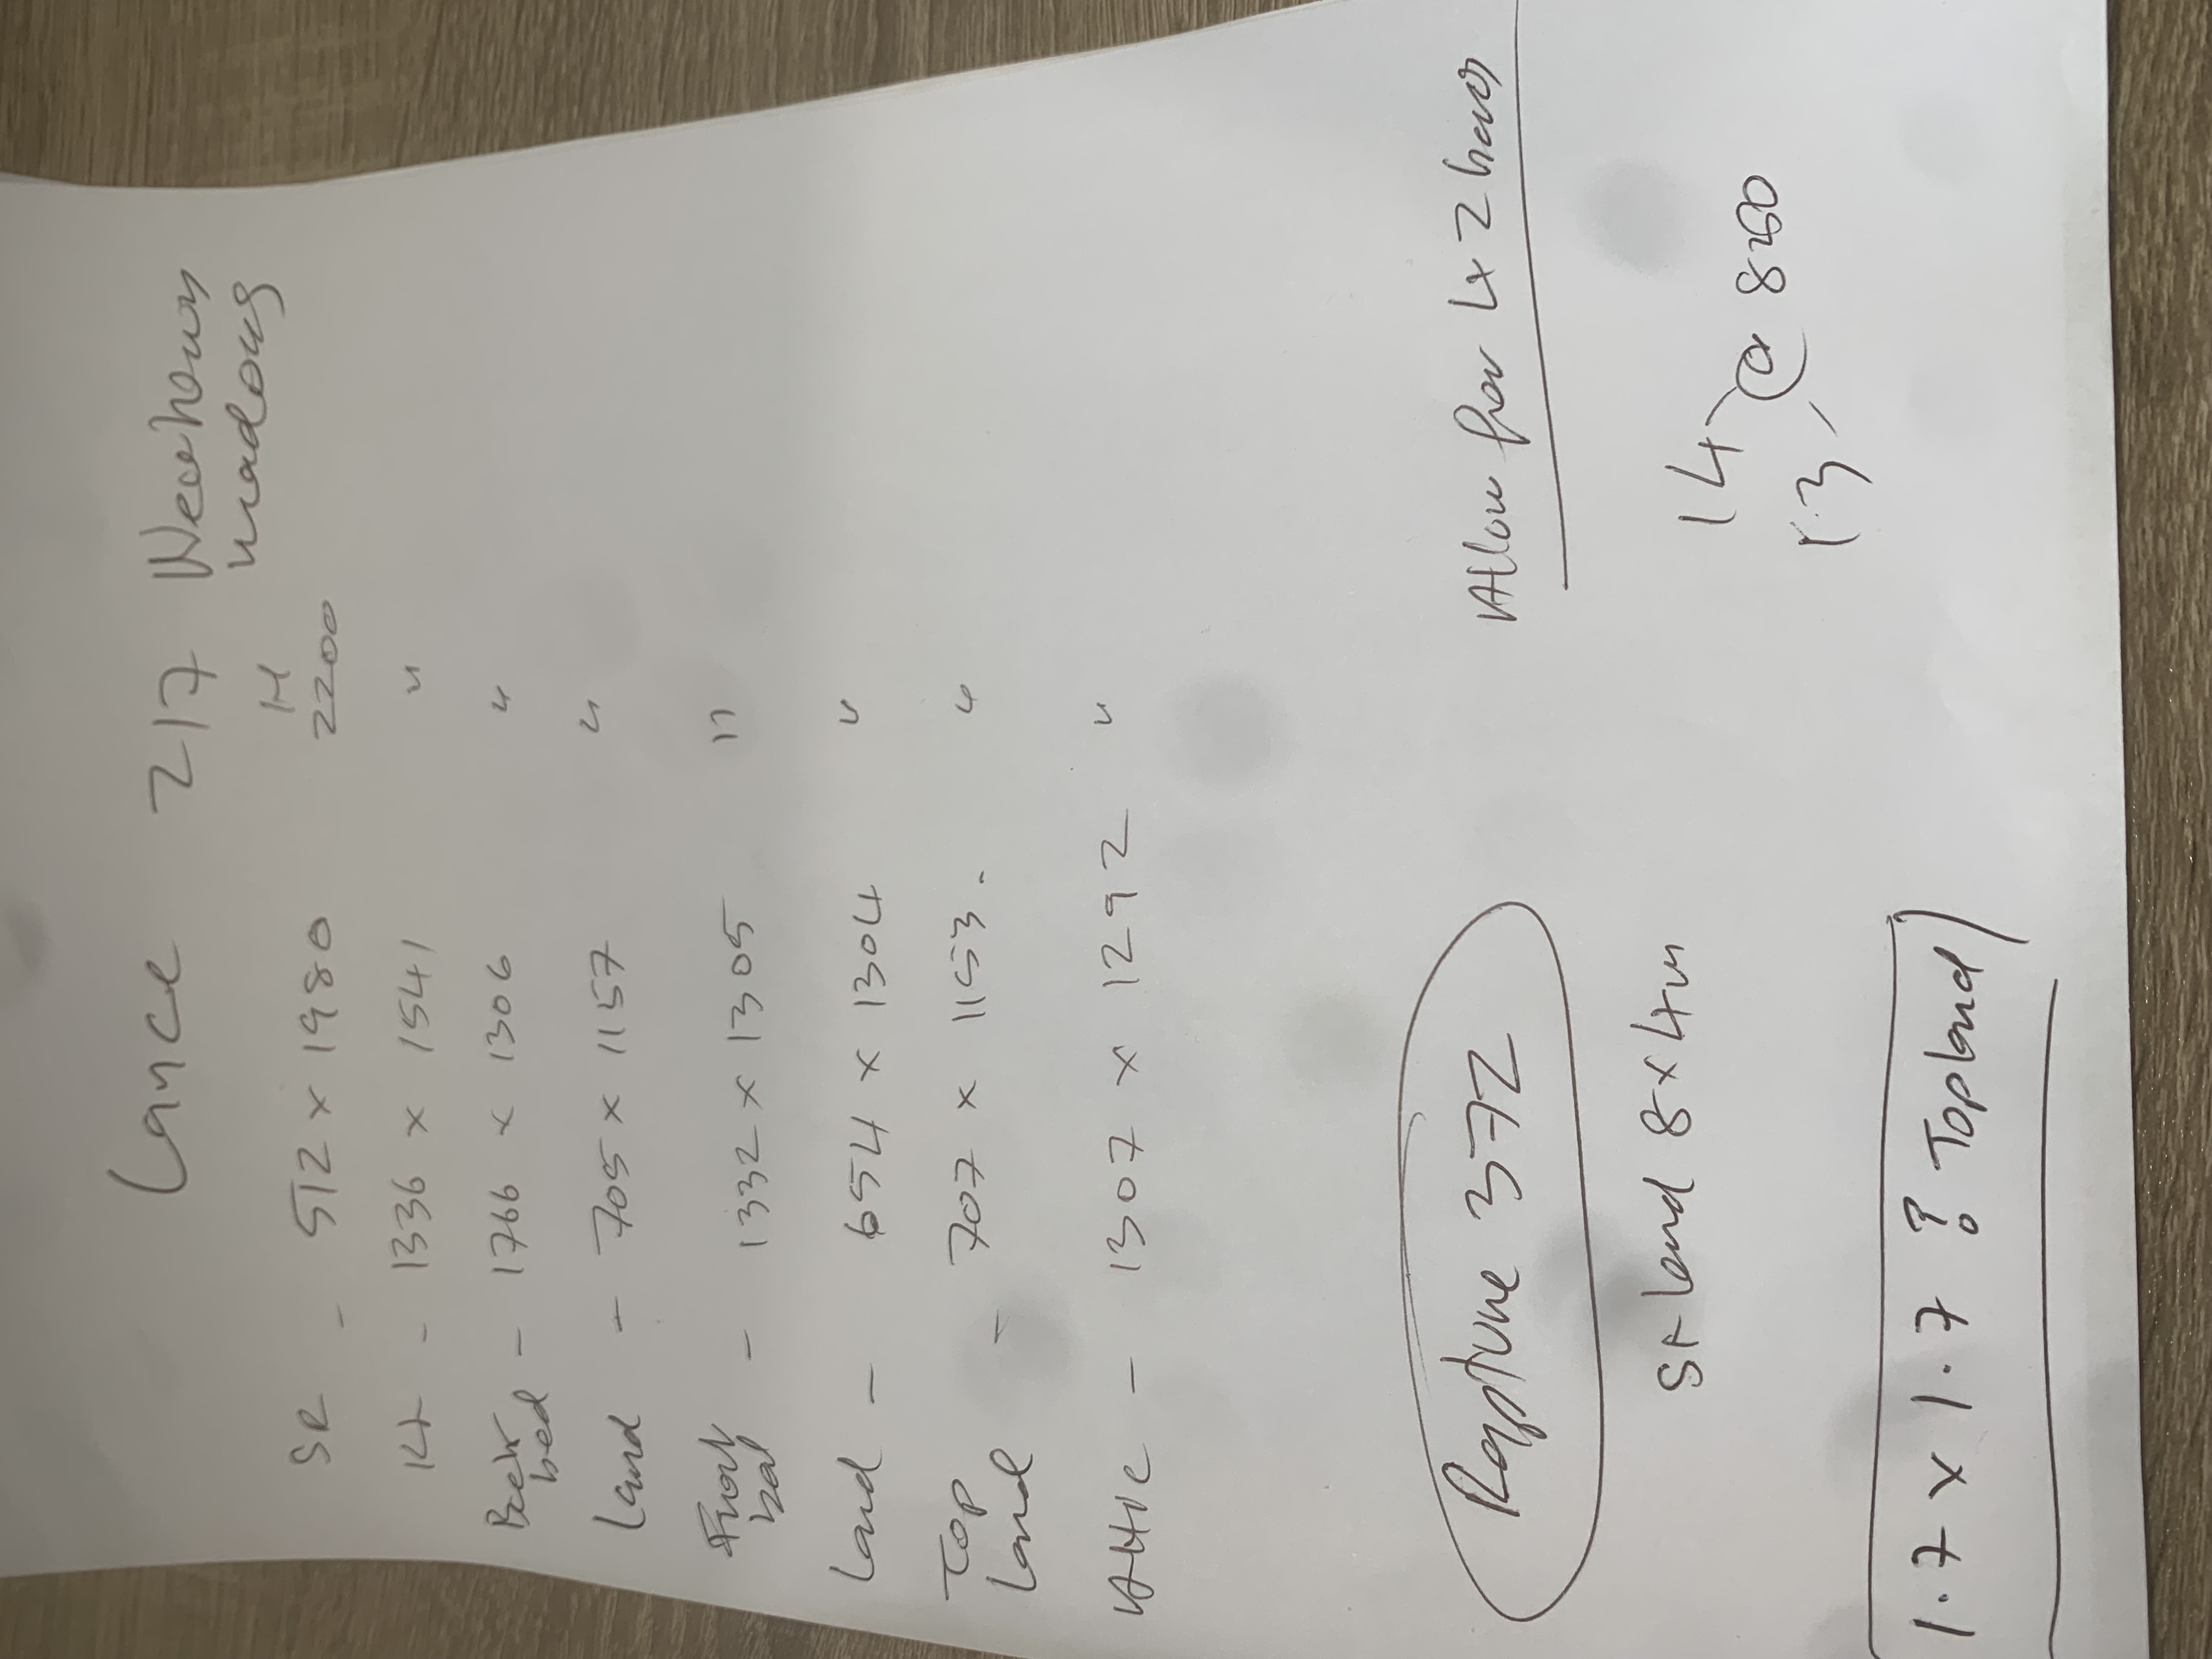 Lance 217
meadows
H
SR - 512 x 1980 2200
Kt - 1336 x 1541 "
Back bed - 1766 x 1306 "
Land - 705 x 1157 "
Front bed - 1332 x 1305 "
Land - 654 x 1304 "
Top Land - 707 x 1153. "
Attic - 1307 x 1292 "
Rapture 372
Allow for 4x2
St Land 8x4m
14
@
13
1.7 x 1.7 ? Topland